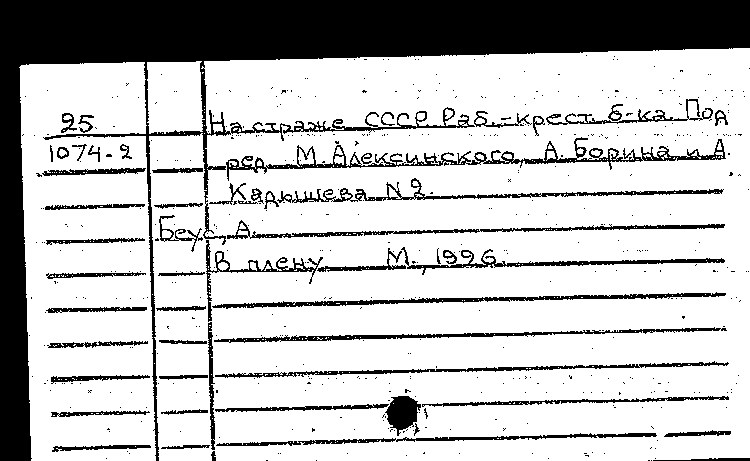 25 На страже СССР. Раб.-крест. б-ка. Под
1074-2 ред. М. Алексинского, А. Борина и А.
Кадышева N 2.
Беус, А.
В плену М., 1926.